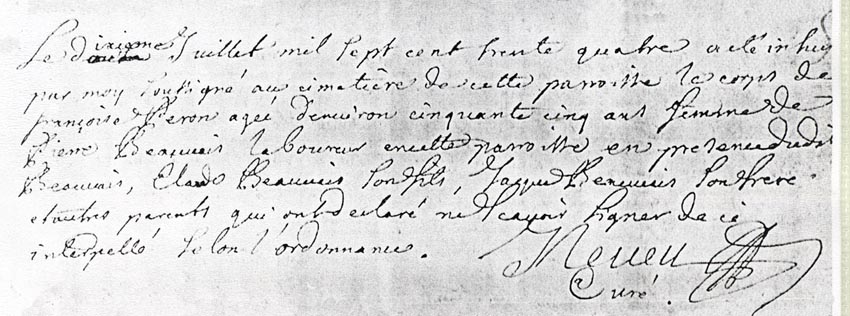 Le dixieme Juillet mil sept cent trente quatre a eté inhu
par moy soussigné au cimetière de cette parroisse le corps de
françoise Peron ageé d'environ cinquante cinq ans femme de
Pierre Beauvais laboureur en cette parroisse en presence dudit
Beauvais, Claude Beauvais son fils, Jacque Beauvais son frere
et autres parents qui ont declaré ne scavoir signer de ce
interpellé selon l'ordonnance.
Neveu
Curé.